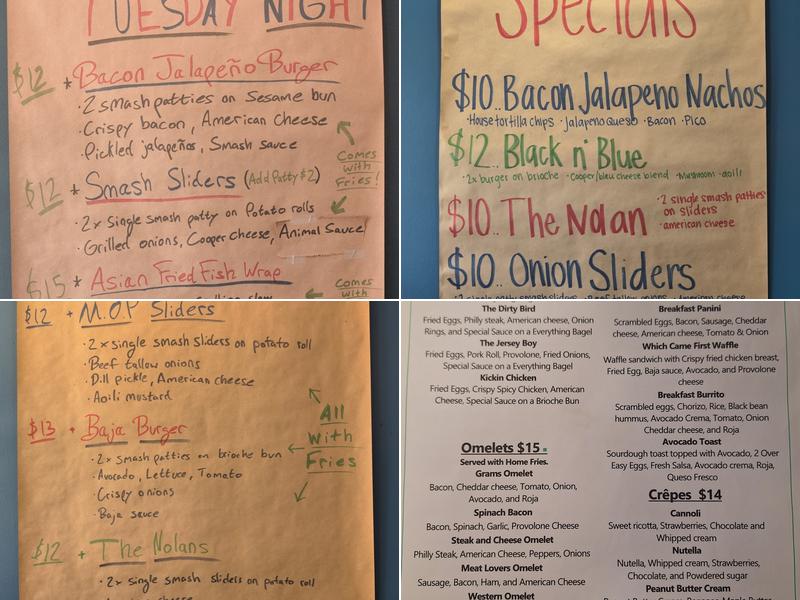 TUESDAY NIGHT
$12 * Bacon Jalapeño Burger
· 2 smash patties on Sesame bun
· Crispy bacon, American Cheese
· Pickled jalapeños, Smash sauce
Comes with Fries!
$12 * Smash Sliders (Add Patty $2)
· 2x Single smash patty on Potato rolls
· Grilled onions, Cooper Cheese, Animal Sauce
$15 * Asian Fried Fish Wrap
Comes with
Specials
$10.. Bacon Jalapeno Nachos
· House tortilla chips · Jalapeno Queso · Bacon · Pico
$12.. Black n' Blue
· 2x burger on brioche · Cooper/bleu cheese blend · Mushroom · aoili
$10.. The Nolan
· 2 single smash patties
on sliders
· american cheese
$10.. Onion Sliders
· 2 single patty smash sliders · Beef tallow onions · American cheese
$12 + M.O.P Sliders
· 2x single smash sliders on potato roll
· Beef tallow onions
· Dill pickle, American cheese
· Aoili mustard
All
with
Fries
$13 + Baja Burger
· 2x smash patties on brioche bun
· Avocado, Lettuce, Tomato
· Crispy onions
· Baja sauce
$12 + The Nolans
· 2x single smash sliders on potato roll
The Dirty Bird
Fried Eggs, Philly steak, American cheese, Onion
Rings, and Special Sauce on a Everything Bagel
The Jersey Boy
Fried Eggs, Pork Roll, Provolone, Fried Onions,
Special Sauce on a Everything Bagel
Kickin Chicken
Fried Eggs, Crispy Spicy Chicken, American
Cheese, Special Sauce on a Brioche Bun
Omelets $15
Served with Home Fries.
Grams Omelet
Bacon, Cheddar cheese, Tomato, Onion,
Avocado, and Roja
Spinach Bacon
Bacon, Spinach, Garlic, Provolone Cheese
Steak and Cheese Omelet
Philly Steak, American Cheese, Peppers, Onions
Meat Lovers Omelet
Sausage, Bacon, Ham, and American Cheese
Western Omelet
Breakfast Panini
Scrambled Eggs, Bacon, Sausage, Cheddar
cheese, American cheese, Tomato & Onion
Which Came First Waffle
Waffle sandwich with Crispy fried chicken breast,
Fried Egg, Baja sauce, Avocado, and Provolone
cheese
Breakfast Burrito
Scrambled eggs, Chorizo, Rice, Black bean
hummus, Avocado Crema, Tomato, Onion
Cheddar cheese, and Roja
Avocado Toast
Sourdough toast topped with Avocado, 2 Over
Easy Eggs, Fresh Salsa, Avocado crema, Roja,
Queso Fresco
Crêpes $14
Cannoli
Sweet ricotta, Strawberries, Chocolate and
Whipped cream
Nutella
Nutella, Whipped cream, Strawberries,
Chocolate, and Powdered sugar
Peanut Butter Cream